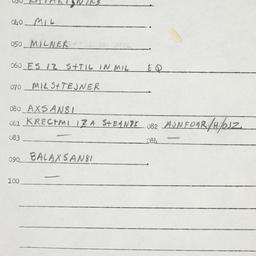 040 MIL
050 MILNER
060 ES IZ S+TIL IN MIL EQ
070 MILS+TEJNER
080 AXSAN8I
081 KREC+MI IZA S+E4N8E 082 AJNFO4R/H/OJZ
083 — 084 —
090 BALAXSAN8I
—
100